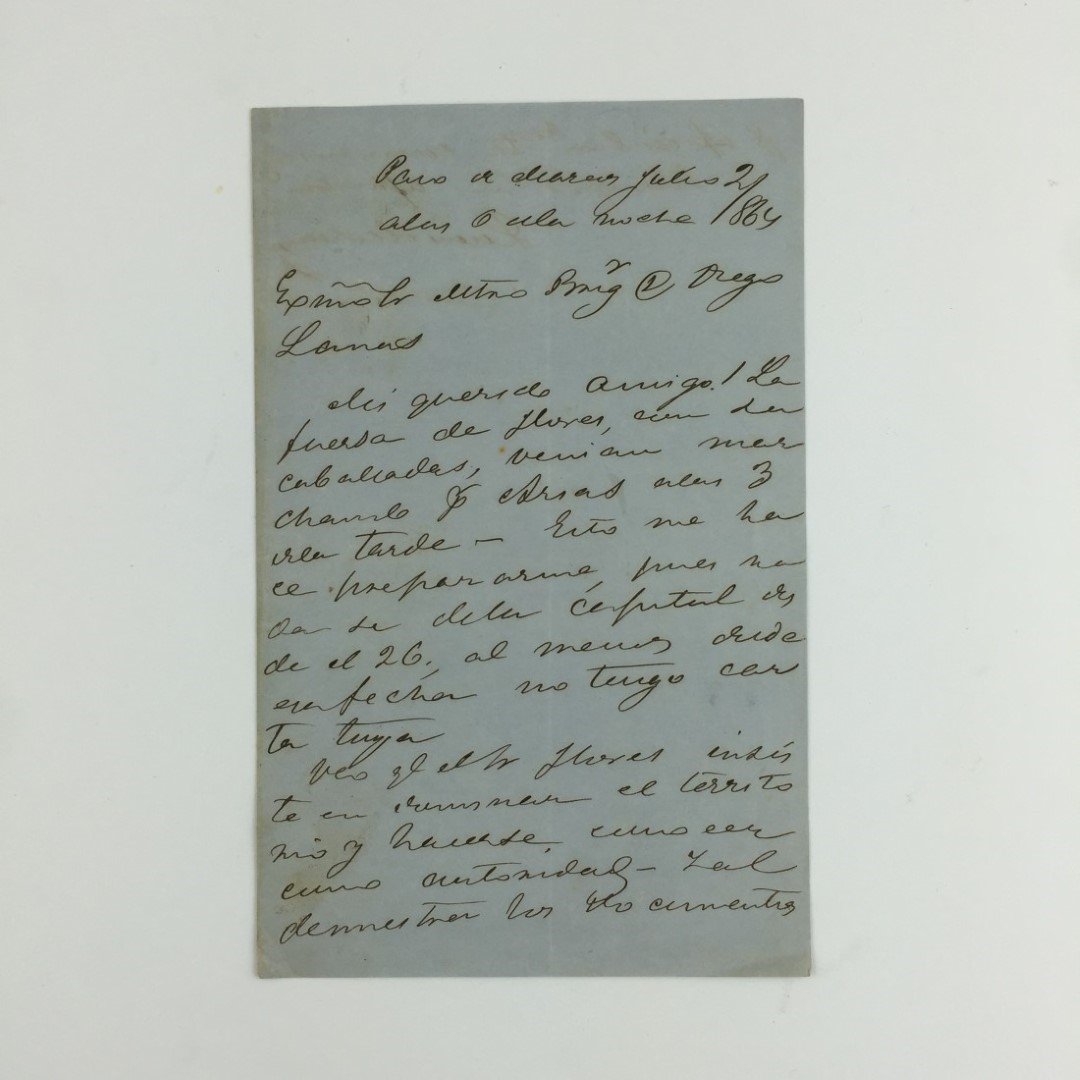 Julio 2/
alas 6 dela noche /864
Exmo Sr Mtro Brigr D Diego
Lamas
Mi querido amigo! La
fuersa de Flores, con su
caballadas, venian mar
chando p Arias alas 3
dela tarde - Esto me ha
ce prepararme, pues na
da se dela Capital des
de el 26, al menos desde
esa fecha no tengo car
ta tuya
Veo ql el Sr Flores insis
te en dominar el territo
rio y hacerse conocer
como autoridad - Tal
demuestran los documentos